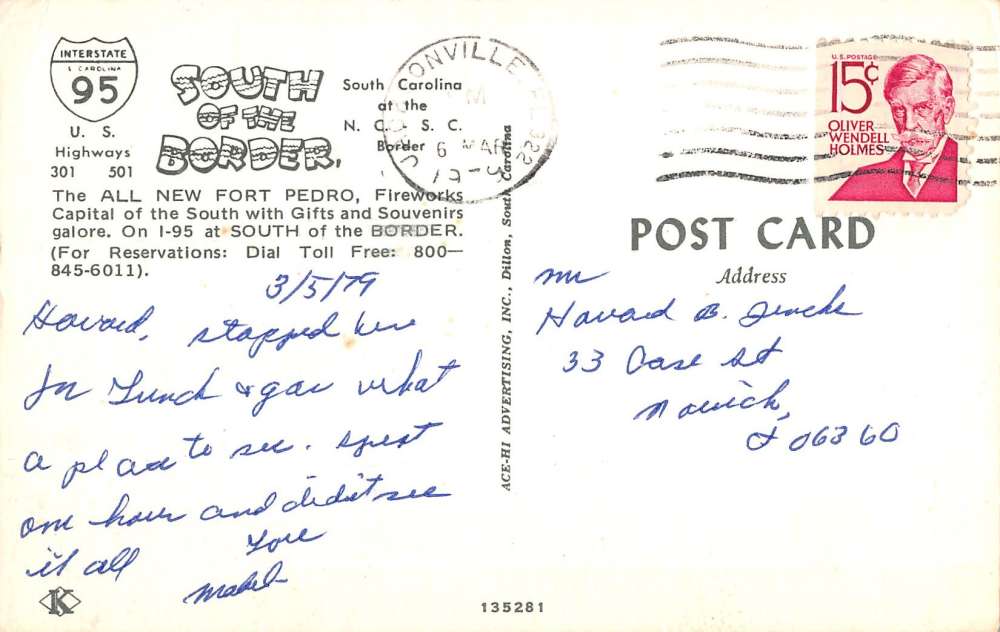 INTERSTATE
S CAROLINA
95
U. S.
Highways
301 501
SOUTH
OF THE
BORDER.
South Carolina
at the
N. C. S. C.
Border
The ALL NEW FORT PEDRO, Fireworks
Capital of the South with Gifts and Souvenirs
galore. On I-95 at SOUTH of the BORDER.
(For Reservations: Dial Toll Free: 800—
845-6011).
3/5/79
Howard, stopped here
for Lunch & gas what
a place to see. spent
one hour and didn't see
it all Love
Mabel
K
135281
ACE-HI ADVERTISING, INC., Dillon, South Carolina
ONVILLE, FL 322
PM
6 MAR
19
U.S. POSTAGE
15¢
OLIVER
WENDELL
HOLMES
POST CARD
Address
Mr
Howard B. Jencks
33 Case St
Norwich,
06360